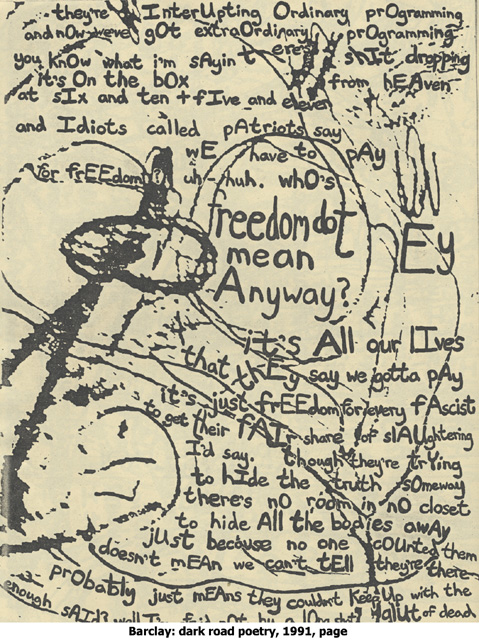 they're InterUpting Ordinary prOgramming
and nOw we've gOt extraOrdinary prOgramming
you knOw what i'm sAyin there's shIt dropping
it's On the bOx from hEAven
at sIx and ten + fIve and eleven
and Idiots called pAtriots say
wE have to pAy
for frEEdom? uh-huh. whO's
freedom dot
mean
Anyway?
it's All our lIves
that thEy say we gotta pAy
it's just frEEdom for every fAscist
to get their fAIr share of slAUghtering
I'd say. though they're trYing
to hIde the truth sOmeway
there's nO room in nO closet
to hide All the bodies awAy
jUst because no one cOUnted them
doesn't mEAn we can't tEll they're there
prObably just mEAns they couldn't KeepUp with the
enough sAId? glUt of dead
Barclay: dark road poetry, 1991, page